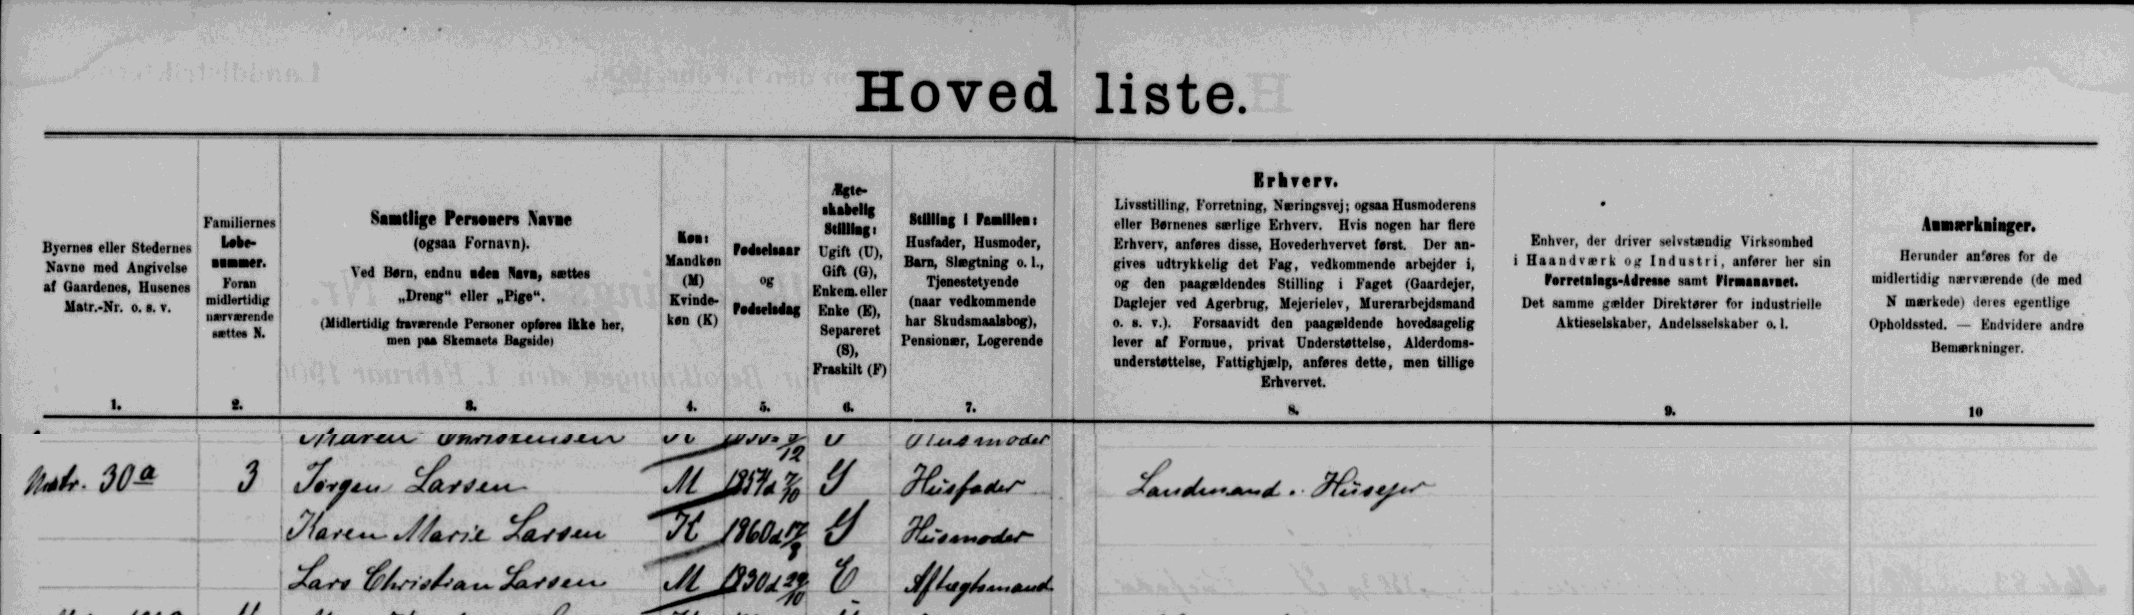 Hoved liste.
Byernes eller Stedernes
Navne med Angivelse
af Gaardenes, Husenes
Matr.-Nr. o. s. v.
1.
Familiernes
Løbe-
nummer.
Foran
midlertidig
nærværende
sættes N.
2.
Samtlige Personers Navne
(ogsaa Fornavn).
Ved Børn, endnu uden Navn, sættes
„Dreng“ eller „Pige“.
(Midlertidig fraværende Personer opføres ikke her,
men paa Skemaets Bagside)
3.
Køn:
Mandkøn
(M)
Kvinde-
køn (K)
4.
Fødselsaar
og
Fødselsdag
5.
Ægte-
skabelig
Stilling:
Ugift (U),
Gift (G),
Enkem. eller
Enke (E),
Separeret
(S),
Fraskilt (F)
6.
Stilling i Familien:
Husfader, Husmoder,
Barn, Slægtning o. l.,
Tjenestetyende
(naar vedkommende
har Skudsmaalsbog),
Pensionær, Logerende
7.
Erhverv.
Livsstilling, Forretning, Næringsvej; ogsaa Husmoderens
eller Børnenes særlige Erhverv. Hvis nogen har flere
Erhverv, anføres disse, Hovederhvervet først. Der an-
gives udtrykkelig det Fag, vedkommende arbejder i,
og den paagældendes Stilling i Faget (Gaardejer,
Daglejer ved Agerbrug, Mejerielev, Murerarbejdsmand
o. s. v.). Forsaavidt den paagældende hovedsagelig
lever af Formue, privat Understøttelse, Alderdoms-
understøttelse, Fattighjælp, anføres dette, men tillige
Erhvervet.
8.
Enhver, der driver selvstændig Virksomhed
i Haandværk og Industri, anfører her sin
Forretnings-Adresse samt Firmanavnet.
Det samme gælder Direktører for industrielle
Aktieselskaber, Andelsselskaber o. l.
9.
Anmærkninger.
Herunder anføres for de
midlertidig nærværende (de med
N mærkede) deres egentlige
Opholdssted. — Endvidere andre
Bemærkninger.
10
Maren Christensen K 12 G Husmoder
Matr. 30a 3 Jørgen Larsen M 1854 d 7/10 G Husfader Landmand. Husejer
Karen Marie Larsen K 1860 d 17/8 G Husmoder
Lars Christian Larsen M 1830 d 29/10 E Aftægtsmand